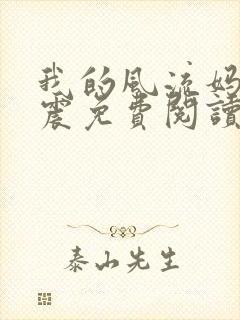 我的风流妈
震免費閱讀
泰山先生